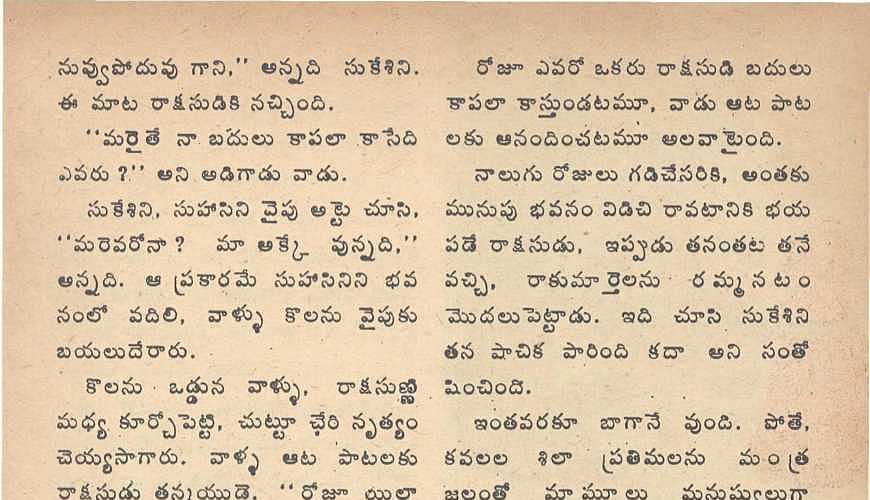 నువ్వుపోదువు గాని,'' అన్నది సుకేశిని.
ఈ మాట రాక్షసుడికి నచ్చింది.
''మరైతే నా బదులు కాపలా కాసేది
ఎవరు ?'' అని అడిగాడు వాడు.
సుకేశిని, సుహాసిని వైపు అట్టె చూసి,
''మరెవరోనా ? మా అక్కే వున్నది,''
అన్నది. ఆ ప్రకారమే సుహాసినిని భవ
నంలో వదిలి, వాళ్ళు కొలను వైపుకు
బయలుదేరారు.
కొలను ఒడ్డున వాళ్ళు, రాక్షసుణ్ణి
మధ్య కూర్చోపెట్టి, చుట్టూ ఛేరి నృత్యం
చెయ్యసాగారు. వాళ్ళ ఆట పాటలకు
రాక్షసుడు తన్మయుడై, ''రోజూ యిలా
రోజూ ఎవరో ఒకరు రాక్షసుడి బదులు
కాపలా కాస్తుండటమూ, వాడు ఆట పాట
లకు ఆనందించటమూ అలవాటైంది.
నాలుగు రోజులు గడిచేసరికి, అంతకు
మునుపు భవనం విడిచి రావటానికి భయ
పడే రాక్షసుడు, ఇప్పుడు తనంతట తనే
వచ్చి, రాకుమార్తెలను రమ్మనటం
మొదలుపెట్టాడు. ఇది చూసి సుకేశిని
తన పాచిక పారింది కదా అని సంతో
షించింది.
ఇంతవరకూ బాగానే వుండి. పోతే,
కవలల శిలా ప్రతిమలను మంత్ర
జలంతో మామూలు మనుషులుగా